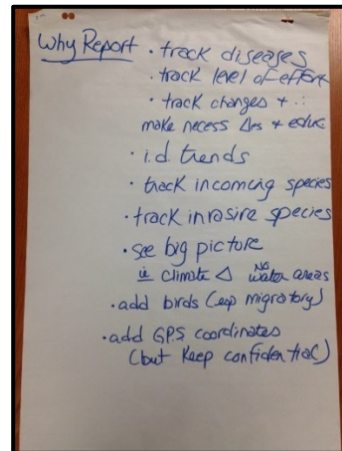 Why Report • track diseases
• track level of effort
• track changes + ∴
make necess Δes + educ
• i.d trends
• track incoming species
• track invasive species
• see big picture
ie climate Δ No water areas
• add birds (esp migratory)
• add GPS coordinates
(but keep confidential)